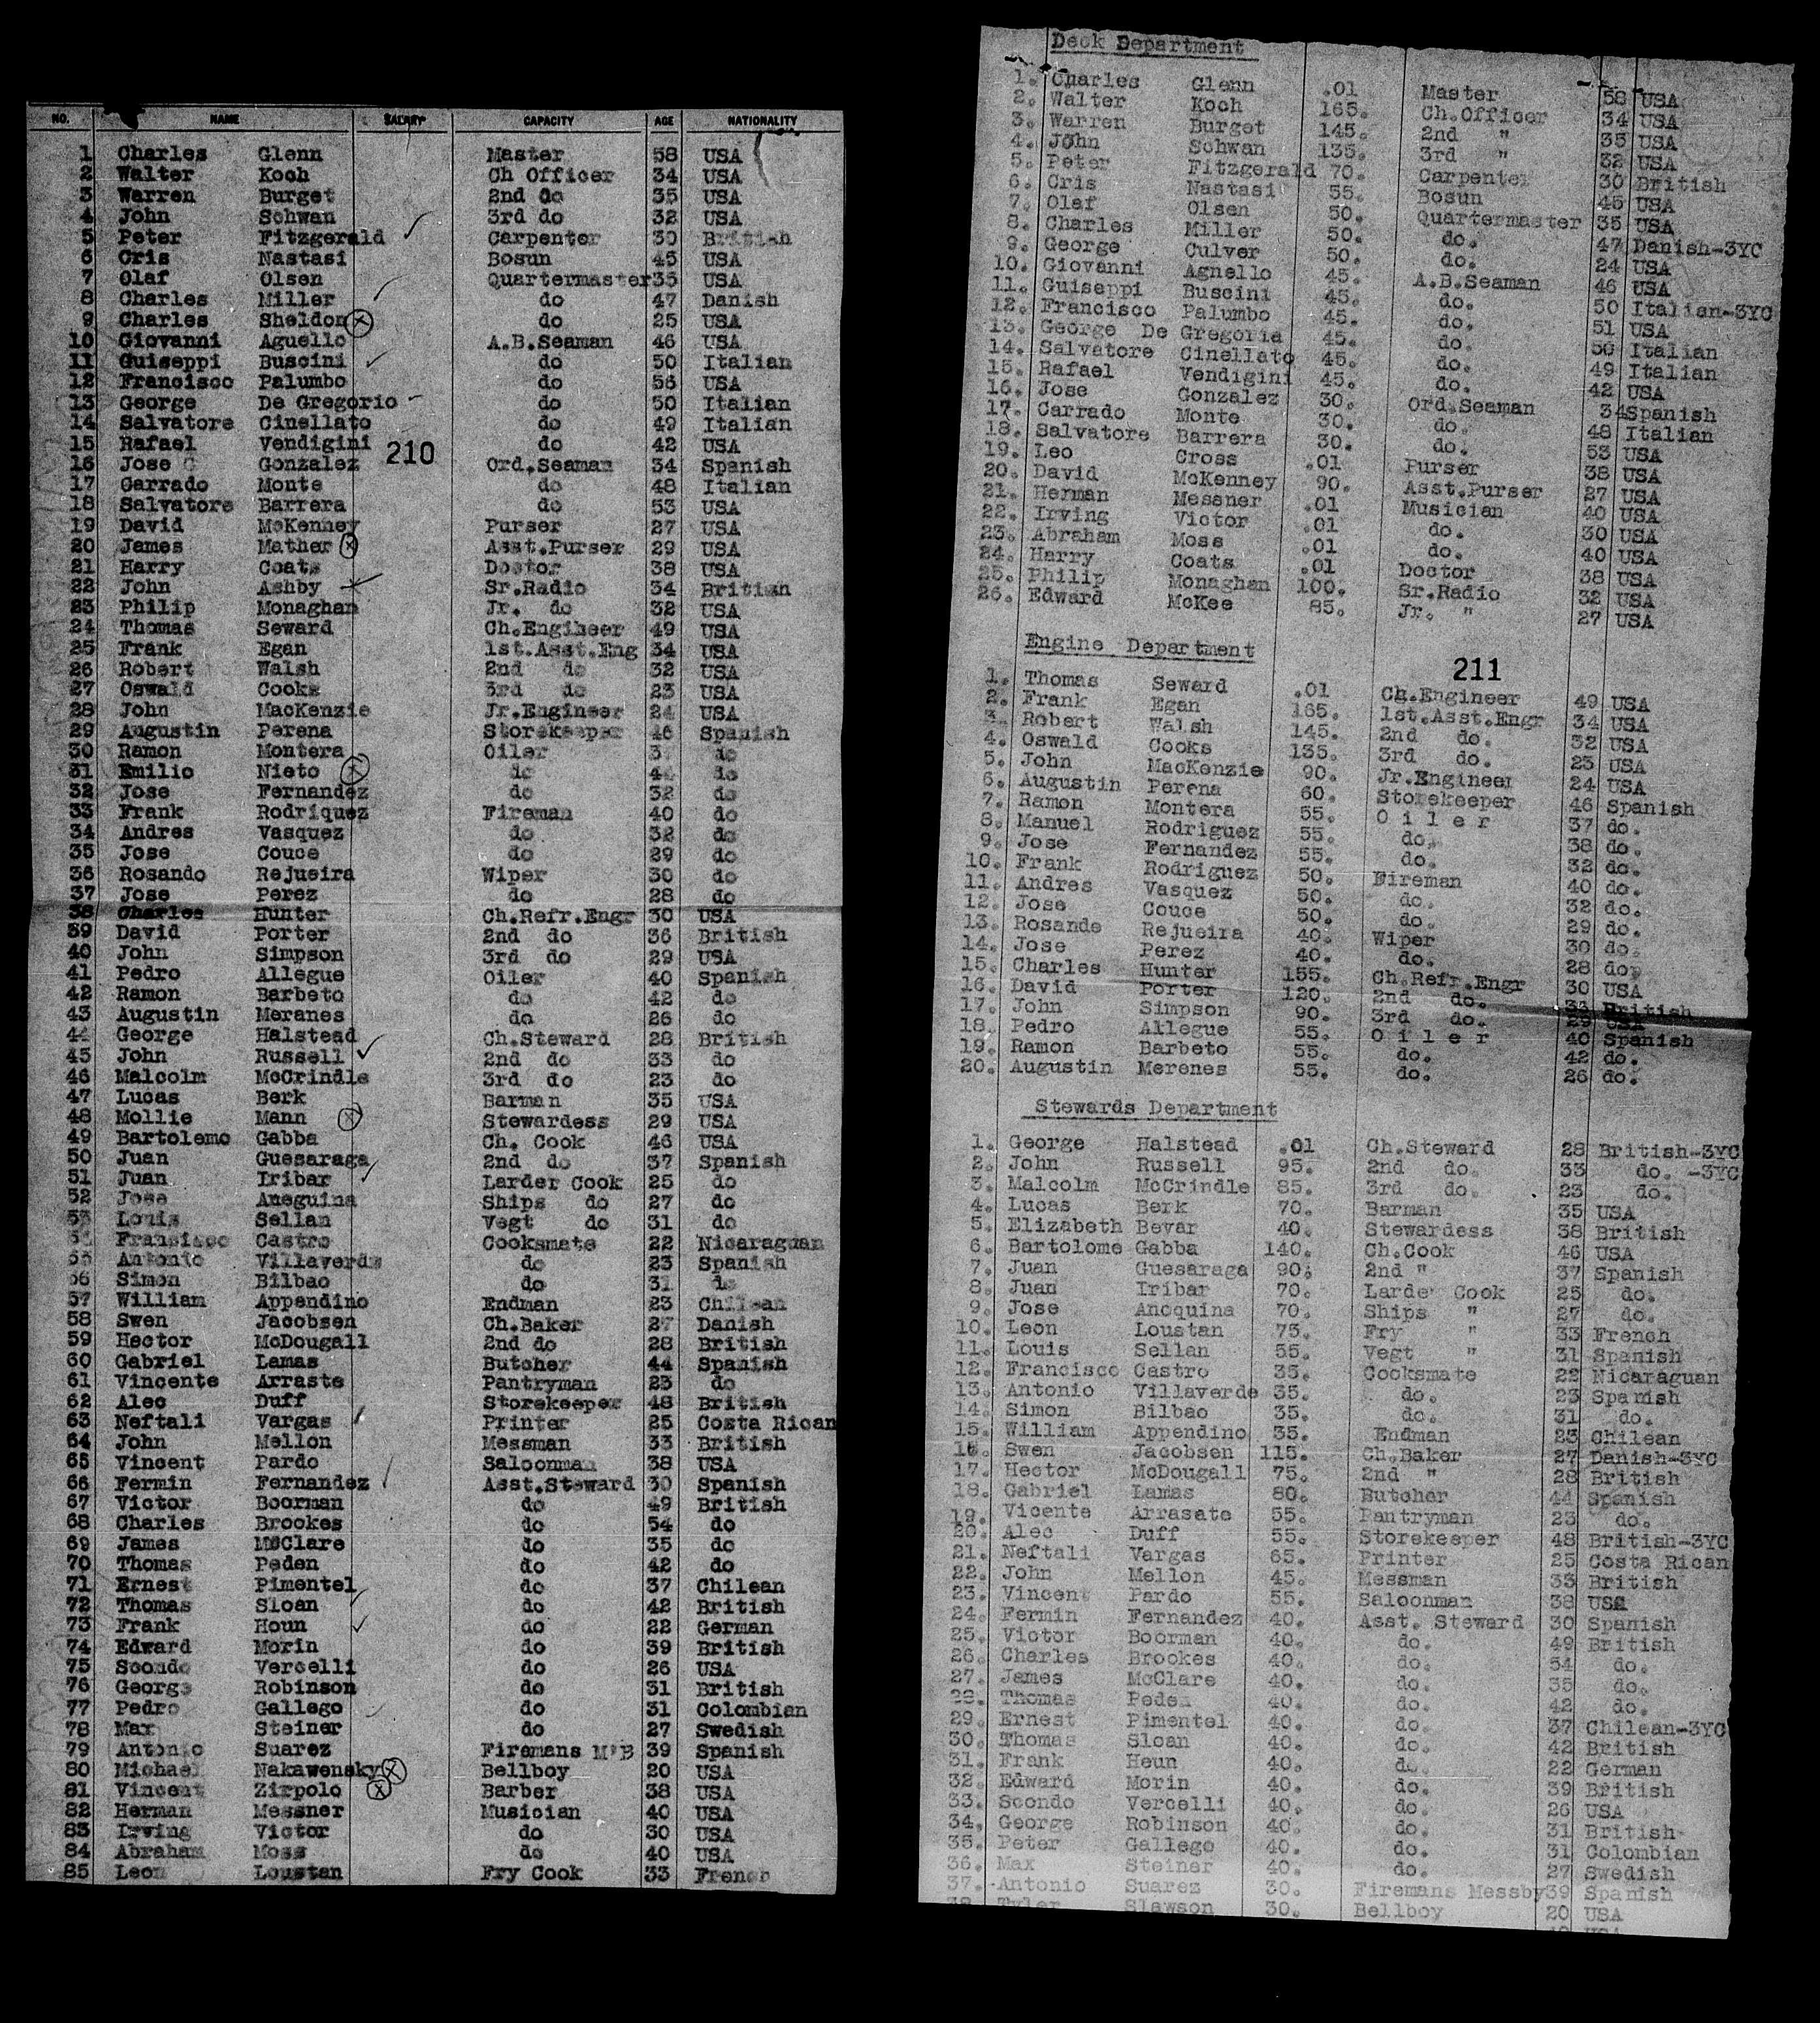 NO. NAME SALARY CAPACITY AGE NATIONALITY
1 Charles Glenn Master 58 USA
2 Walter Koch Ch Officer 34 USA
3 Warren Burget 2nd do 35 USA
4 John Schwan 3rd do 32 USA
5 Peter Fitzgerald Carpenter 30 British
6 Cris Nastasi Bosun 45 USA
7 Olaf Olsen Quartermaster 35 USA
8 Charles Miller do 47 Danish
9 Charles Sheldon do 25 USA
10 Giovanni Aguello A.B.Seaman 46 USA
11 Guiseppi Buscini do 50 Italian
12 Francisco Palumbo do 56 USA
13 George De Gregorio do 50 Italian
14 Salvatore Cinellato do 49 Italian
15 Rafael Vendigini do 42 USA
210
16 Jose Gonzalez Ord.Seaman 34 Spanish
17 Garrado Monte do 48 Italian
18 Salvatore Barrera do 53 USA
19 David McKenney Purser 27 USA
20 James Mather Asst.Purser 29 USA
21 Harry Coats Doctor 38 USA
22 John Ashby Sr.Radio 34 British
23 Philip Monaghan Jr. do 32 USA
24 Thomas Seward Ch.Engineer 49 USA
25 Frank Egan 1st.Asst.Eng 34 USA
26 Robert Walsh 2nd do 32 USA
27 Oswald Cooks 3rd do 23 USA
28 John MacKenzie Jr.Engineer 24 USA
29 Augustin Perena Storekeeper 46 Spanish
30 Ramon Montera Oiler do
31 Emilio Nieto do do
32 Jose Fernandez do 32 do
33 Frank Rodriquez Fireman 40 do
34 Andres Vasquez do 32 do
35 Jose Couce do 29 do
36 Rosando Rejueira Wiper 30 do
37 Jose Perez do 28 do
38 Charles Hunter Ch.Refr.Engr 30 USA
39 David Porter 2nd do 36 British
40 John Simpson 3rd do 29 USA
41 Pedro Allegue Oiler 40 Spanish
42 Ramon Barbeto do 42 do
43 Augustin Meranes do 26 do
44 George Halstead Ch.Steward 28 British
45 John Russell 2nd do 33 do
46 Malcolm McCrindle 3rd do 23 do
47 Lucas Berk Barman 35 USA
48 Mollie Mann Stewardess 29 USA
49 Bartolemo Gabba Ch. Cook 46 USA
50 Juan Guesaraga 2nd do 37 Spanish
51 Juan Iribar Larder Cook 25 do
52 Jose Aneguina Ships do 27 do
53 Louis Sellan Vegt do 31 do
54 Fransisco Castro Cooksmate 22 Nicaraguan
55 Antonio Villaverde do 23 Spanish
56 Simon Bilbao do 31 do
57 William Appendino Endman 23 Chilean
58 Swen Jacobsen Ch.Baker 27 Danish
59 Hector McDougall 2nd do 28 British
60 Gabriel Lamas Butcher 44 Spanish
61 Vincente Arraste Pantryman 23 do
62 Alec Duff Storekeeper 48 British
63 Neftali Vargas Printer 25 Costa Rican
64 John Mellon Messman 33 British
65 Vincent Pardo Saloonman 38 USA
66 Fermin Fernandez Asst.Steward 30 Spanish
67 Victor Boorman do 49 British
68 Charles Brookes do 54 do
69 James McClare do 35 do
70 Thomas Peden do 42 do
71 Ernest Pimentel do 37 Chilean
72 Thomas Sloan do 42 British
73 Frank Houn do 22 German
74 Edward Morin do 39 British
75 Scondo Vercelli do 26 USA
76 George Robinson do 31 British
77 Pedro Gallego do 31 Colombian
78 Max Steiner do 27 Swedish
79 Antonio Suarez Firemans M'B 39 Spanish
80 Michael Nakawensky Bellboy 20 USA
81 Vincent Zirpolo Barber 38 USA
82 Herman Messner Musician 40 USA
83 Irving Victor do 30 USA
84 Abraham Moss do 40 USA
85 Leon Loustan Fry Cook 33 French
Deck Department
1. Charles Glenn .01 Master 58 USA
2. Walter Koch 165. Ch.Officer 34 USA
3. Warren Burget 145. 2nd " 35 USA
4. John Schwan 135. 3rd " 32 USA
5. Peter Fitzgerald 70. Carpenter 30 British
6. Cris Nastasi 55. Bosun 45 USA
7. Olaf Olsen 50. Quartermaster 35 USA
8. Charles Miller 50. do. 47 Danish-3YC
9. George Culver 50. do. 24 USA
10. Giovanni Agnello 45. A.B.Seaman 46 USA
11. Guiseppi Buscini 45. do. 50 Italian-3YC
12. Francisco Palumbo 45. do. 51 USA
13. George De Gregoria 45. do. 50 Italian
14. Salvatore Cinellato 45. do. 49 Italian
15. Rafael Vendigini 45. do. 42 USA
16. Jose Gonzalez 30. Ord.Seaman 34 Spanish
17. Carrado Monte 30. do. 48 Italian
18. Salvatore Barrera 30. do. 53 USA
19. Leo Cross .01 Purser 38 USA
20. David McKenney 90. Asst.Purser 27 USA
21. Herman Messner .01 Musician 40 USA
22. Irving Victor .01 do. 30 USA
23. Abraham Moss .01 do. 40 USA
24. Harry Coats .01 Doctor 38 USA
25. Philip Monaghan 100. Sr.Radio 32 USA
26. Edward McKee 85. Jr. " 27 USA
Engine Department
211
1. Thomas Seward .01 Ch.Engineer 49 USA
2. Frank Egan 165. 1st.Asst.Engr 34 USA
3. Robert Walsh 145. 2nd do. 32 USA
4. Oswald Cooks 135. 3rd do. 23 USA
5. John MacKenzie 90. Jr.Engineer 24 USA
6. Augustin Perena 60. Storekeeper 46 Spanish
7. Ramon Montera 55. O i l e r 37 do.
8. Manuel Rodriguez 55. do. 38 do.
9. Jose Fernandez 55. do. 32 do.
10. Frank Rodriguez 50. Fireman 40 do.
11. Andres Vasquez 50. do. 32 do.
12. Jose Couce 50. do. 29 do.
13. Rosande Rejueira 40. Wiper 30 do.
14. Jose Perez 40. do. 28 do.
15. Charles Hunter 155. Ch.Refr.Engr 30 USA
16. David Porter 120. 2nd do. British
17. John Simpson 90. 3rd do. 29 USA
18. Pedro Allegue 55. O i l e r 40 Spanish
19. Ramon Barbeto 55. do. 42 do.
20. Augustin Merenes 55. do. 26 do.
Stewards Department
1. George Halstead .01 Ch.Steward 28 British-3YC
2. John Russell 95. 2nd do. 33 do. -3YC
3. Malcolm McCrindle 85. 3rd do. 23 do.
4. Lucas Berk 70. Barman 35 USA
5. Elizabeth Bevar 40. Stewardess 38 British
6. Bartolome Gabba 140. Ch.Cook 46 USA
7. Juan Guesaraga 90. 2nd " 37 Spanish
8. Juan Iribar 70. Larder Cook 25 do.
9. Jose Anoquina 70. Ships " 27 do.
10. Leon Loustan 75. Fry " 33 French
11. Louis Sellan 55. Vegt " 31 Spanish
12. Francisco Castro 35. Cooksmate 22 Nicaraguan
13. Antonio Villaverde 35. do. 23 Spanish
14. Simon Bilbao 35. do. 31 do.
15. William Appendino 35. Endman 23 Chilean
16. Swen Jacobsen 115. Ch.Baker 27 Danish-3YC
17. Hector McDougall 75. 2nd " 28 British
18. Gabriel Lamas 80. Butcher 44 Spanish
19. Vicente Arrasate 55. Pantryman 23 do.
20. Alec Duff 55. Storekeeper 48 British-3YC
21. Neftali Vargas 65. Printer 25 Costa Rican
22. John Mellon 45. Messman 33 British
23. Vincent Pardo 55. Saloonman 38 USA
24. Fermin Fernandez 40. Asst. Steward 30 Spanish
25. Victor Boorman 40. do. 49 British
26. Charles Brookes 40. do. 54 do.
27. James McClare 40. do. 35 do.
28. Thomas Peden 40. do. 42 do.
29. Ernest Pimentel 40. do. 37 Chilean-3YC
30. Thomas Sloan 40. do. 42 British
31. Frank Heun 40. do. 22 German
32. Edward Morin 40. do. 39 British
33. Scondo Vercelli 40. do. 26 USA
34. George Robinson 40. do. 31 British
35. Peter Gallego 40. do. 31 Colombian
36. Max Steiner 40. do. 27 Swedish
37. Antonio Suarez 30. Firemans Messby 39 Spanish
38. Tyler Slawson 30. Bellboy 20 USA